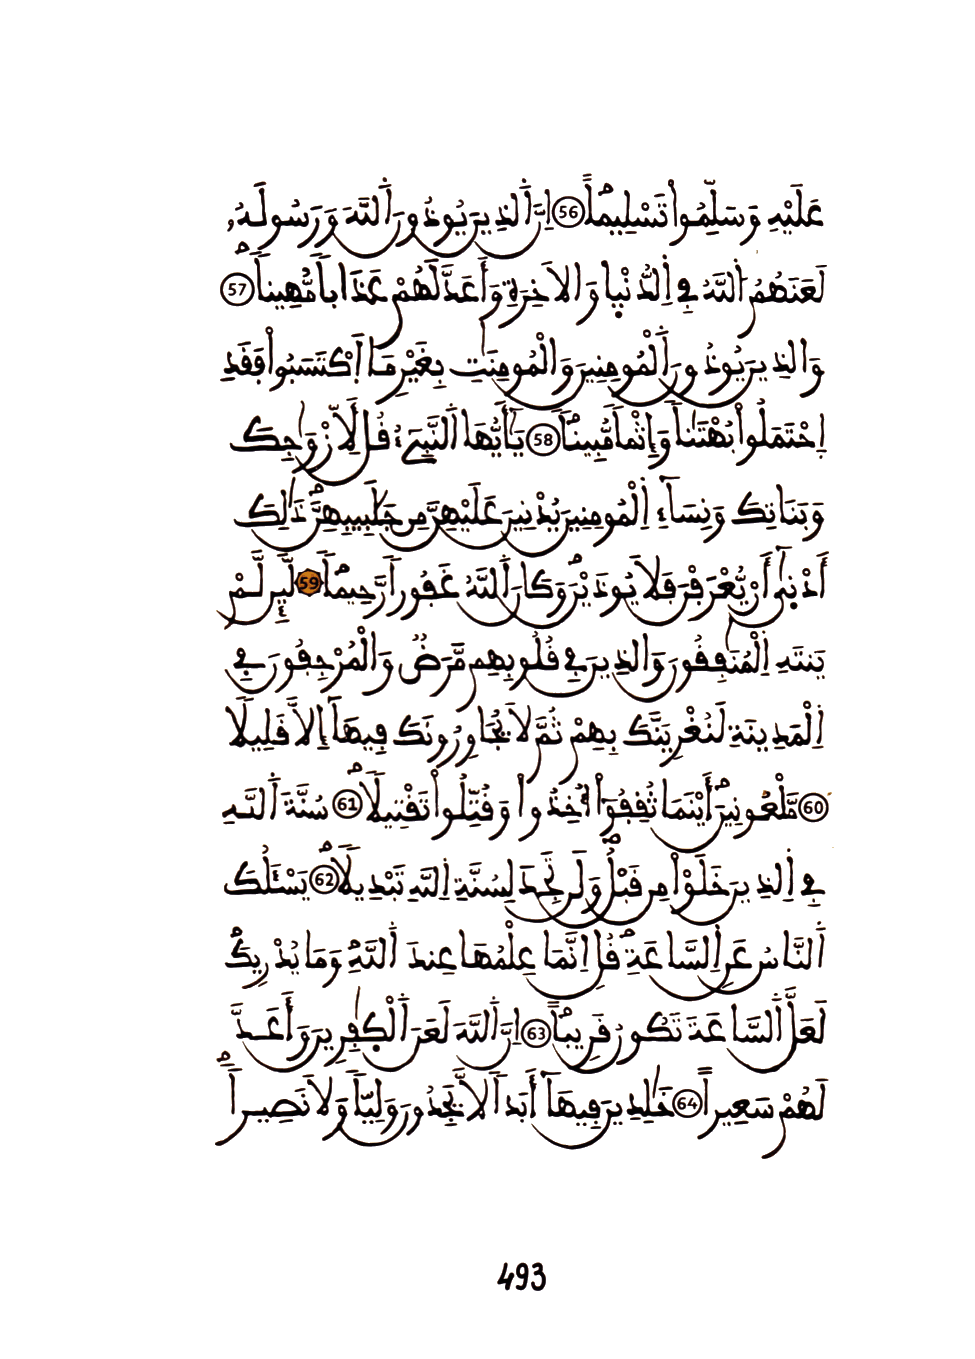 عَلَيْهِ وَسَلِّمُواْ تَسْلِيماًۖ 56 إِنَّ اَ۬لذِينَ يُوذُونَ اَ۬للَّهَ وَرَسُولَهُۥ
لَعَنَهُمُ اُ۬للَّهُ فِے اِ۬لدُّنْي۪ا وَالَاخِرَةِ وَأَعَدَّ لَهُمْ عَذَاباٗ مُّهِيناٗۖ 57
وَالذِينَ يُوذُونَ اَ۬لْمُومِنِينَ وَالْمُومِنَٰتِ بِغَيْرِ مَا اَ۪كْتَسَبُواْ فَقَدِ
اِ۪حْتَمَلُواْ بُهْتَٰناٗ وَإِثْماٗ مُّبِيناٗۖ 58 يَٰأَيُّهَا اَ۬لنَّبِےٓءُ قُل لَّأَزْوَٰجِكَ
وَبَنَاتِكَ وَنِسَآءِ اِ۬لْمُومِنِينَ يُدْنِينَ عَلَيْهِنَّ مِن جَلَٰبِيبِهِنَّۖ ذَٰلِكَ
أَدْن۪ىٰٓ أَنْ يُّعْرَفْنَ فَلَا يُوذَيْنَۖ وَكَانَ اَ۬للَّهُ غَفُوراٗ رَّحِيماٗۖ 59 لَّئِن لَّمْ
يَنتَهِ اِ۬لْمُنَٰفِقُونَ وَالذِينَ فِے قُلُوبِهِم مَّرَضٞ وَالْمُرْجِفُونَ فِے
اِ۬لْمَدِينَةِ لَنُغْرِيَنَّكَ بِهِمْ ثُمَّ لَا يُجَاوِرُونَكَ فِيهَآ إِلَّا قَلِيلاٗ
60 مَّلْعُونِينَۖ أَيْنَمَا ثُقِفُوٓاْ أُخِذُواْ وَقُتِّلُواْ تَقْتِيلاٗۖ 61 سُنَّةَ اَ۬للَّهِ
فِے اِ۬لذِينَ خَلَوْاْ مِن قَبْلُۖ وَلَن تَجِدَ لِسُنَّةِ اِ۬للَّهِ تَبْدِيلاٗۖ 62 يَسْـَٔلُكَ
اَ۬لنَّاسُ عَنِ اِ۬لسَّاعَةِۖ قُلِ اِنَّمَا عِلْمُهَا عِندَ اَ۬للَّهِۖ وَمَا يُدْرِيكَۖ
لَعَلَّ اَ۬لسَّاعَةَ تَكُونُ قَرِيباًۖ 63 اِنَّ اَ۬للَّهَ لَعَنَ اَ۬لْكٰ۪فِرِينَ وَأَعَدَّ
لَهُمْ سَعِيراً 64 خَٰلِدِينَ فِيهَآ أَبَداٗ لَّا يَجِدُونَ وَلِيّاٗ وَلَا نَصِيراٗۖ
493